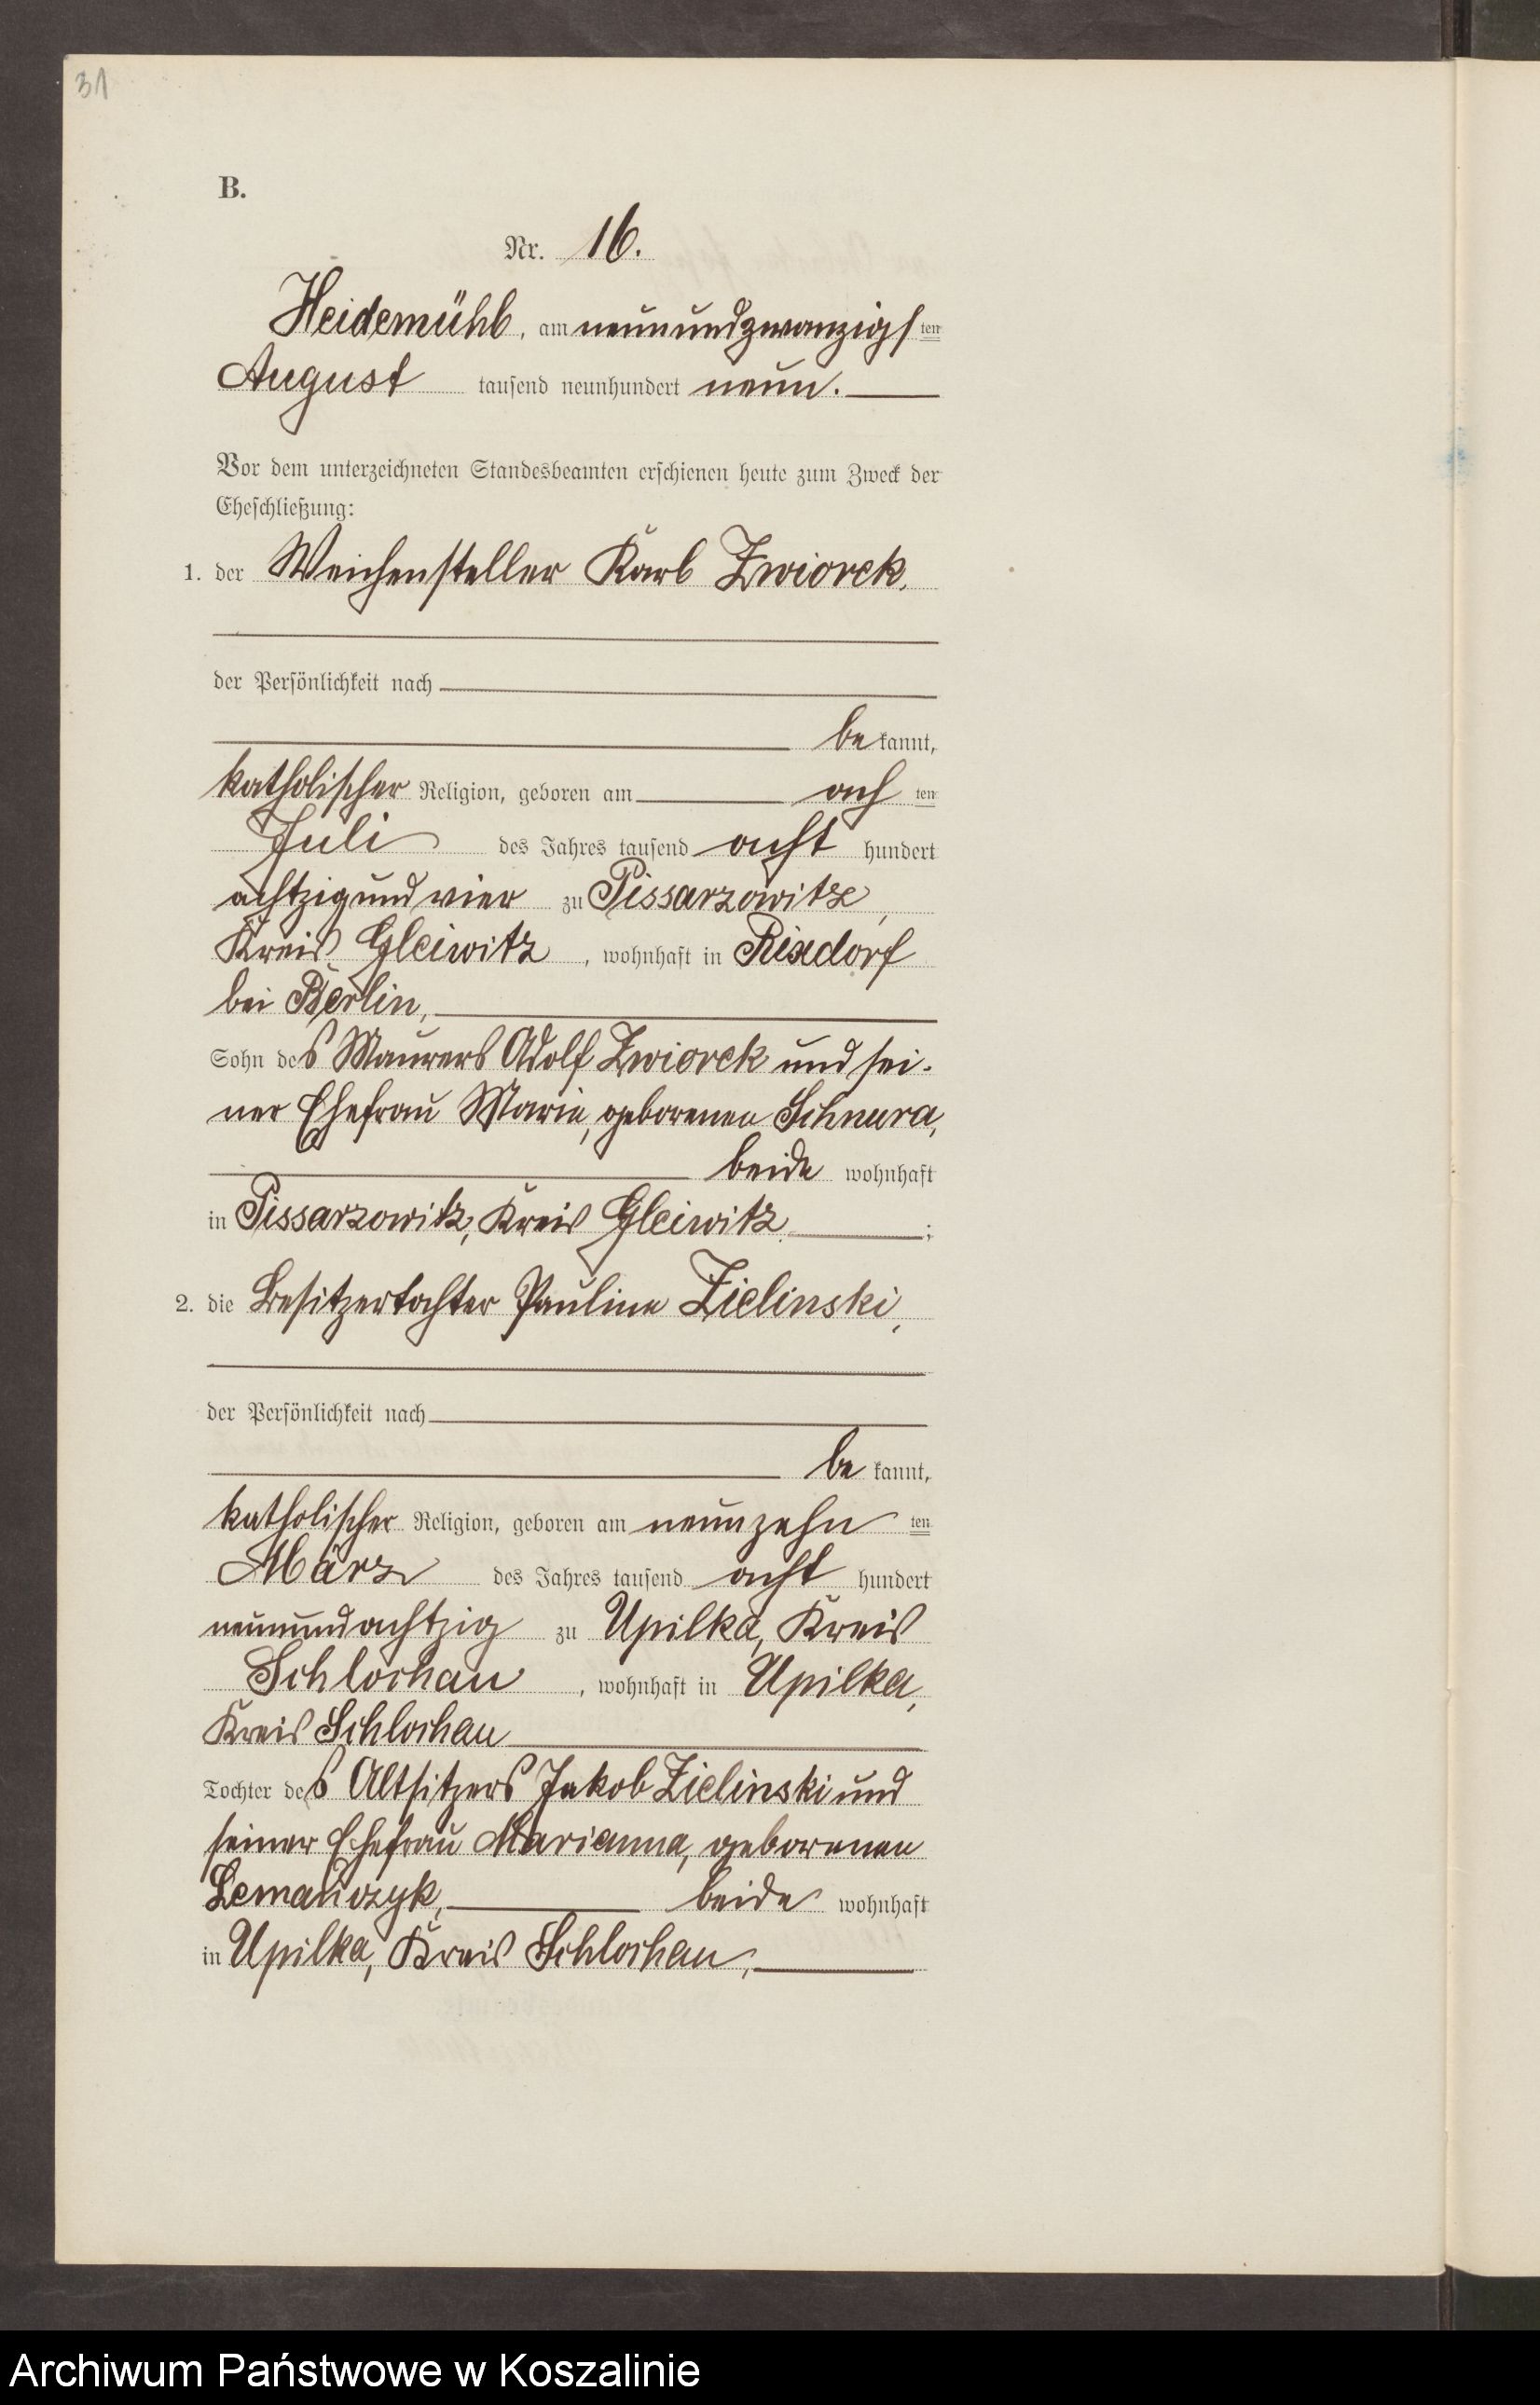 31
B.
Nr. 16.
Heidemühl, am neunundzwanzigsten
August tausend neunhundert neun.
Vor dem unterzeichneten Standesbeamten erschienen heute zum Zweck der
Eheschließung:
1. der Weichensteller Karl Zwiorek,
der Persönlichkeit nach
bekannt,
katholischer Religion, geboren am achten
Juli des Jahres tausend achthundert
achtzigundvier zu Pissarzowitz,
Kreis Gleiwitz, wohnhaft in Rixdorf
bei Berlin,
Sohn des Maurers Adolf Zwiorek und sei-
ner Ehefrau Marie, geborenen Schnura,
beide wohnhaft
in Pissarzowitz, Kreis Gleiwitz;
2. die Besitzertochter Pauline Zielinski,
der Persönlichkeit nach
bekannt,
katholischer Religion, geboren am neunzehnten
März des Jahres tausend achthundert
neunundachtzig zu Upilka, Kreis
Schlochau, wohnhaft in Upilka,
Kreis Schlochau
Tochter des Altsitzers Jakob Zielinski und
seiner Ehefrau Marianna, geborenen
Lemańczyk, beide wohnhaft
in Upilka, Kreis Schlochau,
Archiwum Państwowe w Koszalinie